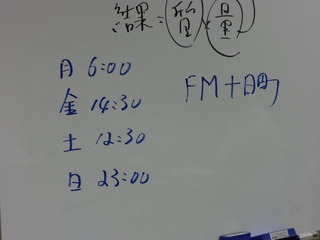 結果=(質)×(量)
月 6:00
金 14:30
土 12:30
日 23:00
FM十日町